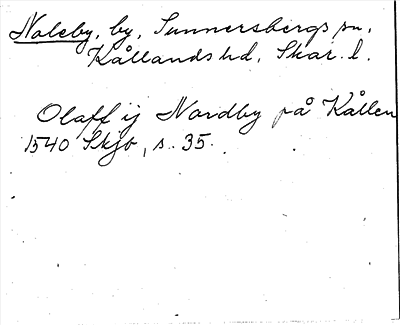 Naleby, by, Sunnersbergs sn,
Kållands hd, Skar. l.
Olaff ij Nordby på Kållen
1540 Skjb, s. 35.